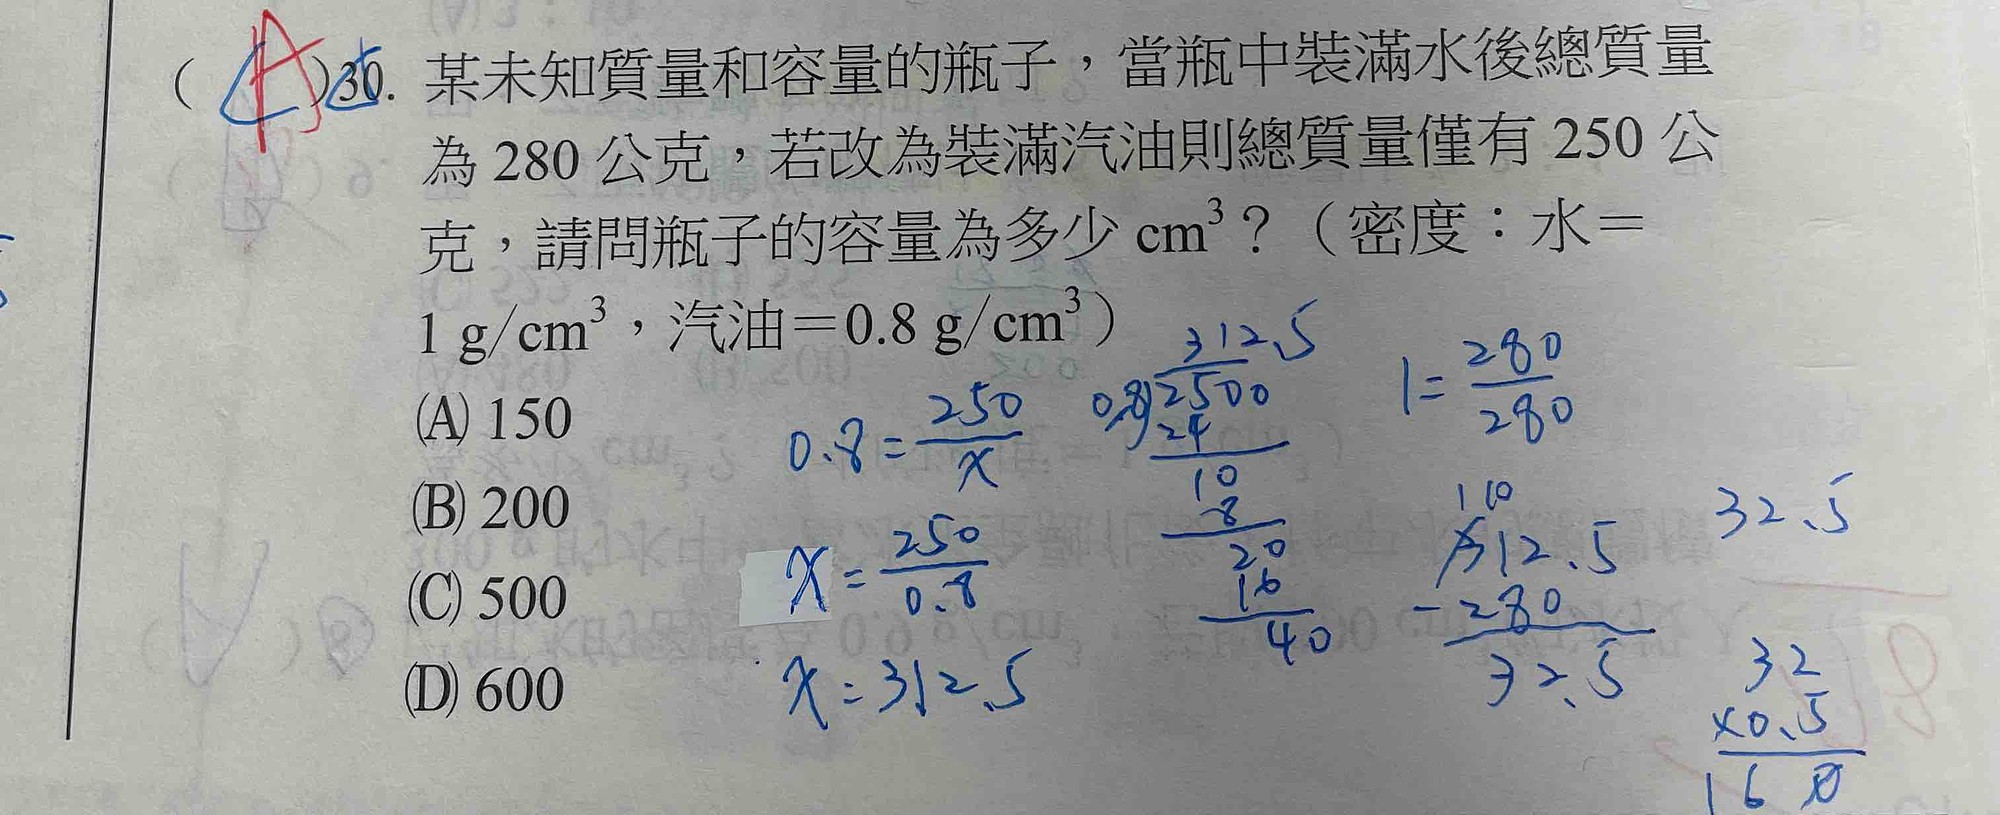 (A)30. 某未知質量和容量的瓶子，當瓶中裝滿水後總質量
為 280 公克，若改為裝滿汽油則總質量僅有 250 公
克，請問瓶子的容量為多少 cm³？（密度：水＝
1 g/cm³，汽油＝0.8 g/cm³）
(A) 150
(B) 200
(C) 500
(D) 600
0.8 = 250/x
x = 250/0.8
x = 312.5
312.5
0.8)2500
24
10
8
20
16
40
1 = 280/280
110
312.5
-280
32.5
32.5
32
×0.5
160